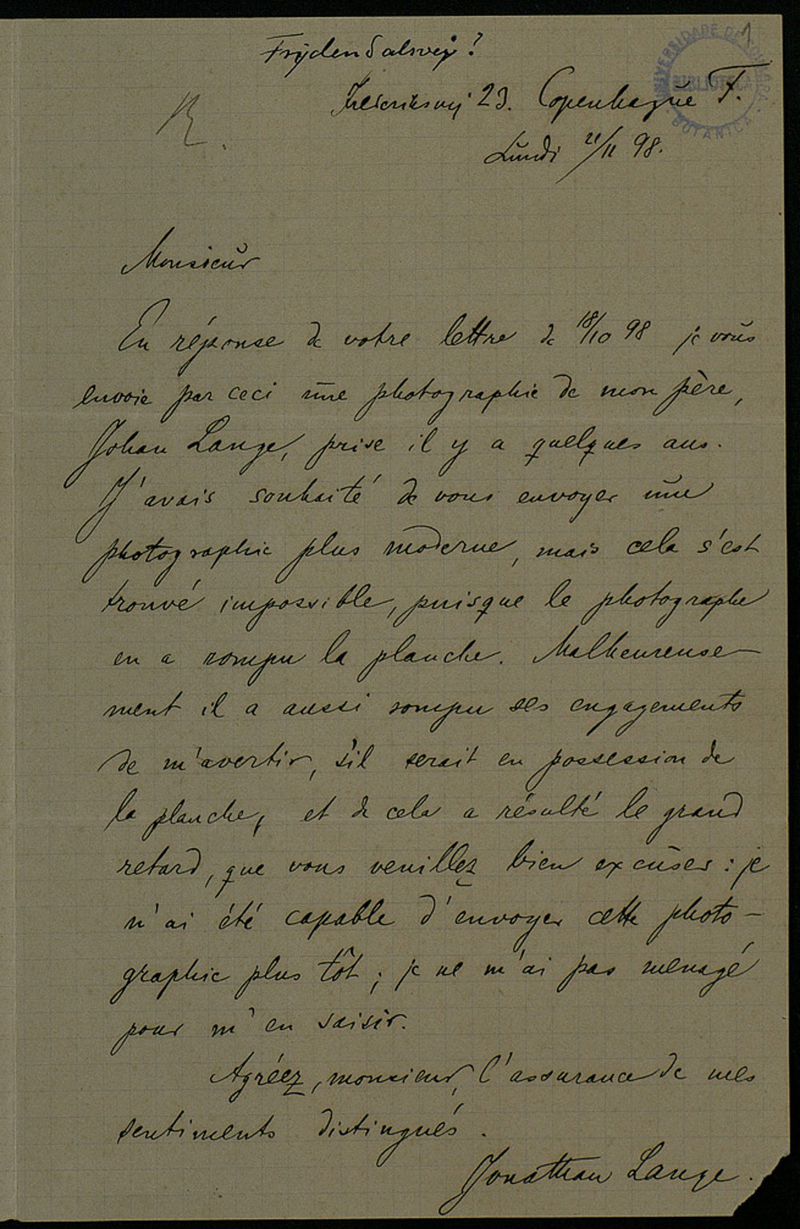 Frydendalsvej?
Frederiksvej 23. Copenhague F.
Lundi 21/11 98.
R.
1
UNIVERSIDADE DE COIMBRA
BIBLIOTECA
BOTANICA
Monsieur
En réponse de votre lettre de 18/10 98 je vous
envoie par ceci une photographie de mon père,
Johan Lange, prise il y a quelques ans.
J'avais souhaité de vous envoyer une
photographie plus moderne, mais cela s'est
trouvé impossible, puisque le photographe
en a rompu la planche. Malheureuse-
ment il a aussi rompu ses engagements
de m'avertir, s'il serait en possession de
la planche, et de cela a résulté le grand
retard, que vous veuillez bien excuser: je
n'ai été capable d'envoyer cette photo-
graphie plus tôt; je ne m'ai pas menagé
pour m'en saisir.
Agréez, monsieur, l'assurance de mes
sentiments distingués.
Jonathan Lange.